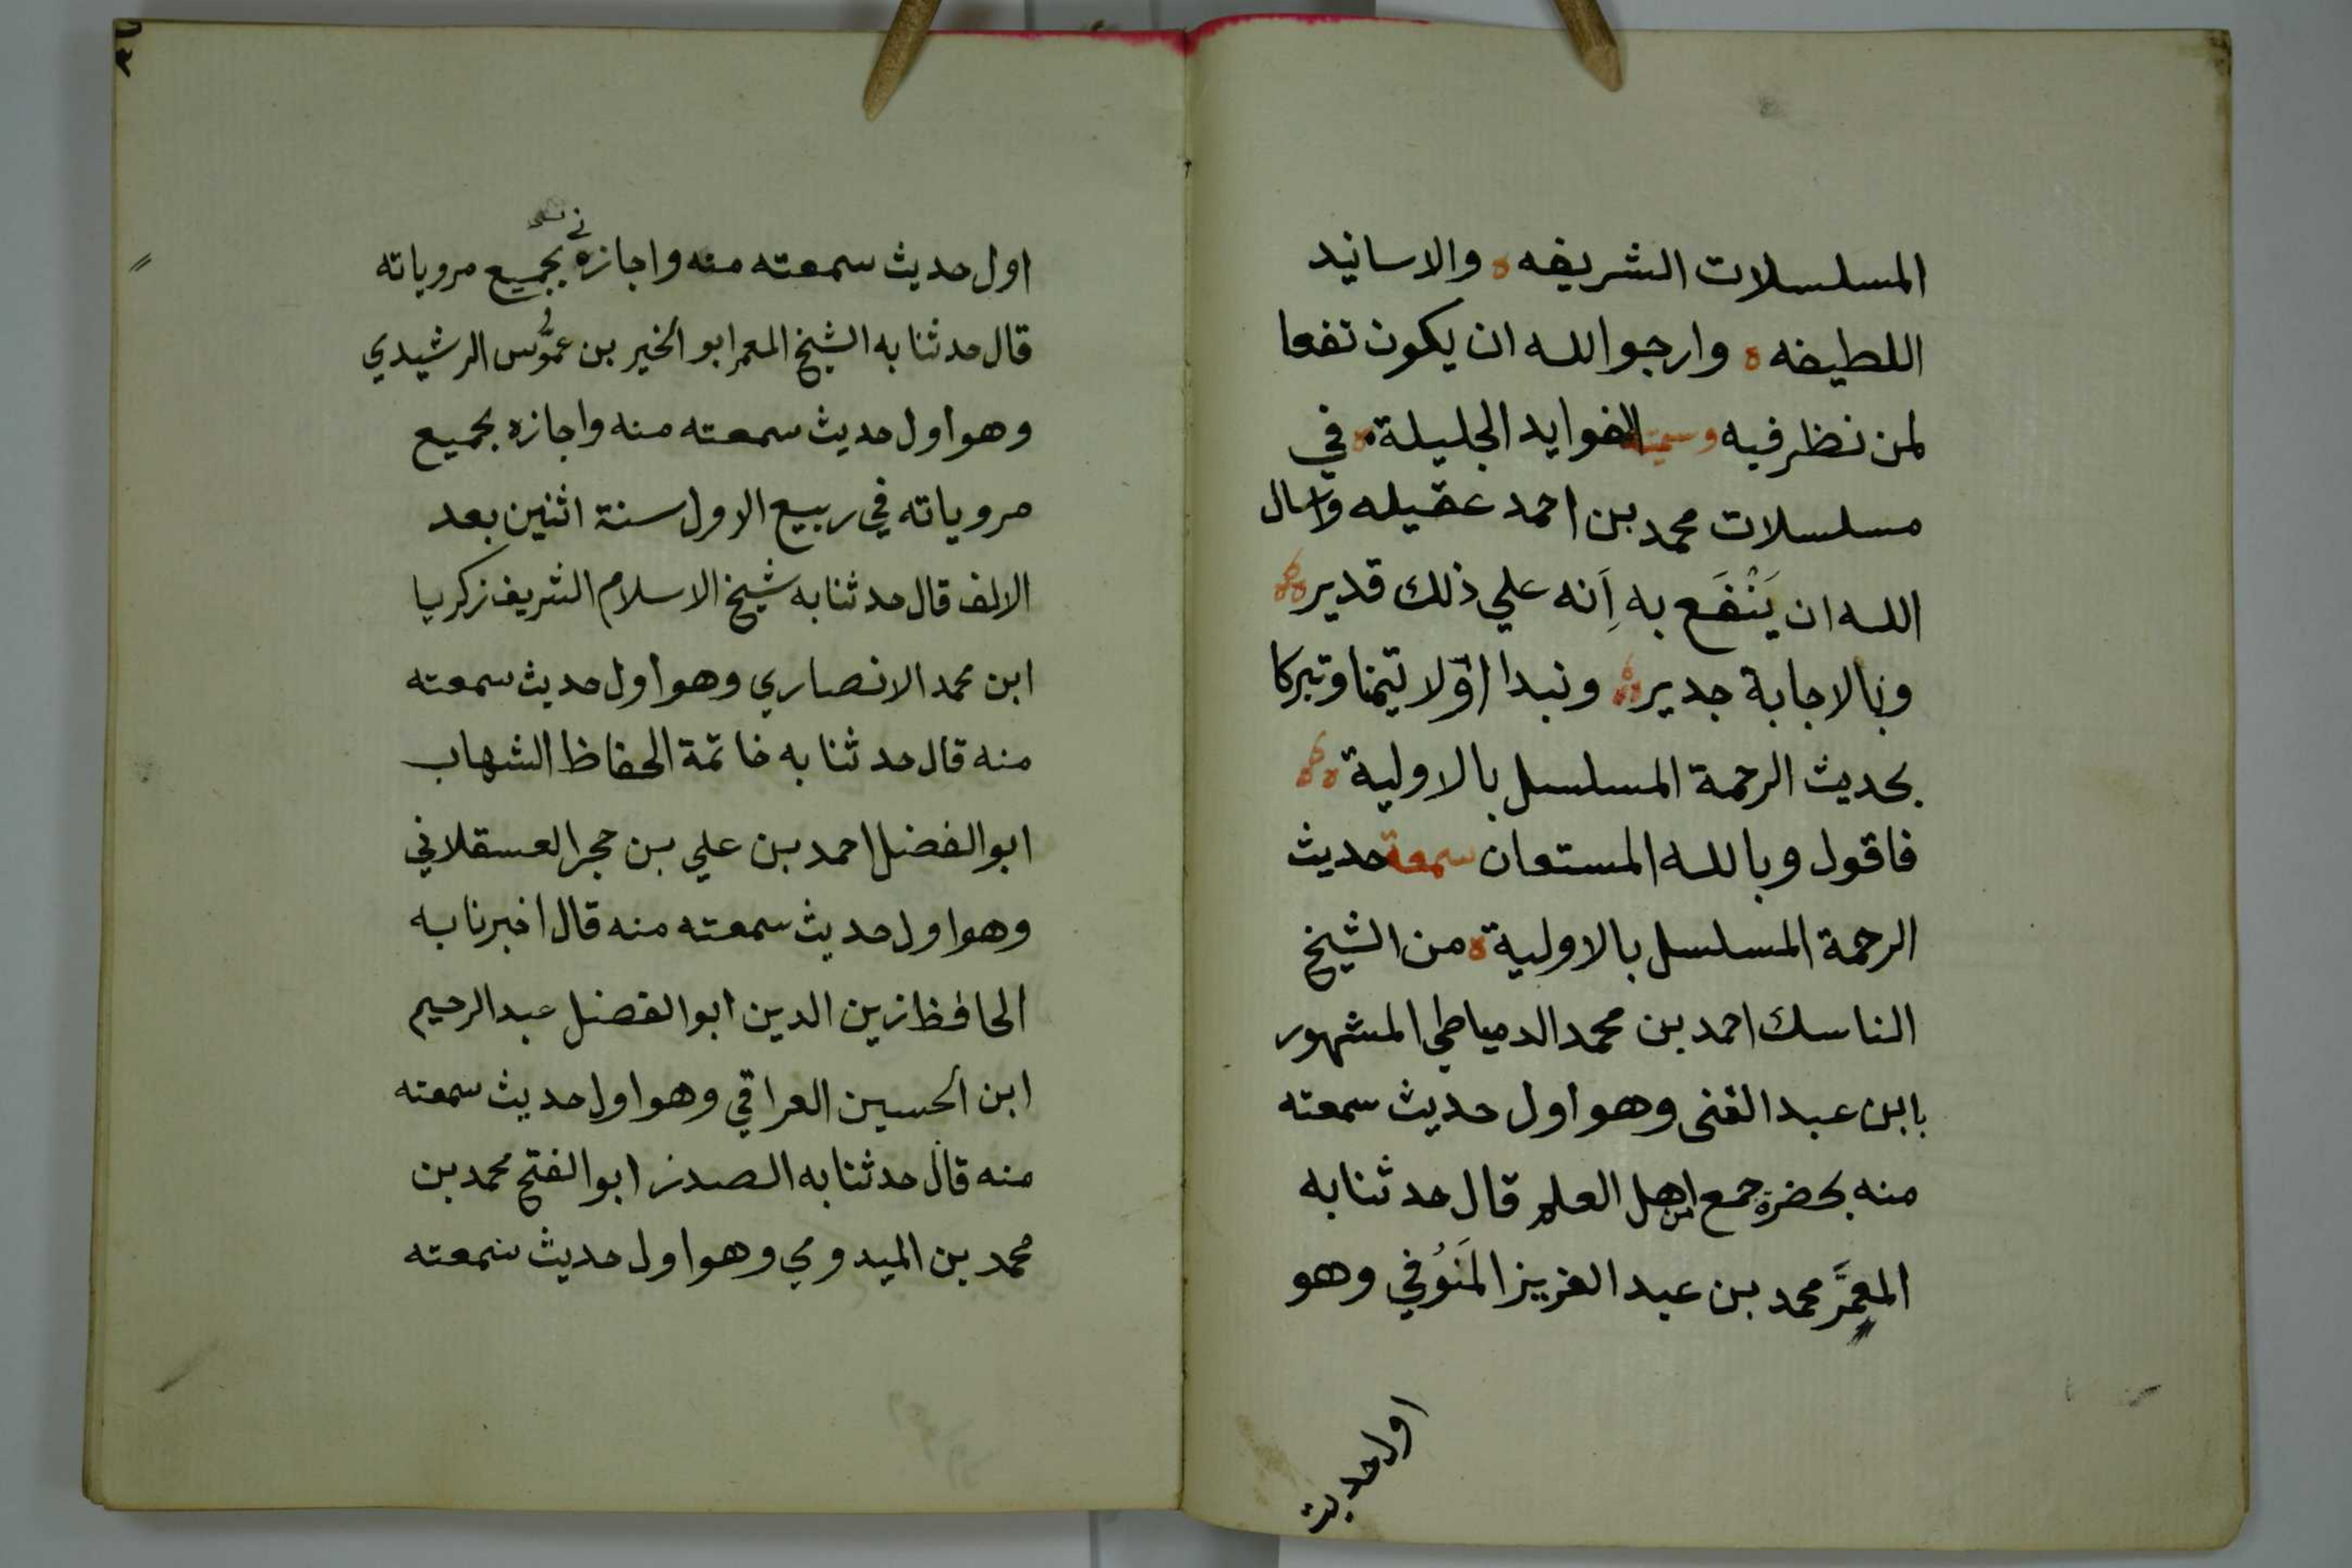 المسلسلات الشريفه ه والاسانيد
اللطيفه ه وارجو الله ان يكون نفعا
لمن نظر فيه وسميته الفوايد الجليلة ه في
مسلسلات محمد بن احمد عقيله واسال
الله ان يَنْفَع به اِنه علي ذلك قدير
وبالاجابة جدير ونبدا اوّلا تيمنا وتبركا
بحديث الرحمة المسلسل بالاولية ه
فاقول وبالله المستعان سمعة حديث
الرحمة المسلسل بالاولية ه من الشيخ
الناسك احمد بن محمد الدمياطي المشهور
بابن عبد الغنى وهو اول حديث سمعته
منه بحضرة جمع من اهل العلم قال حدثنا به
المعمَّر محمد بن عبد العزيز المَنُوفي وهو
اول حديث
اول حديث سمعته منه واجازه بجميع مروياته
قال حدثنا به الشيخ المعمر ابو الخير بن عمُّوس الرشيدي
وهو اول حديث سمعته منه واجازه بجميع
مروياته في ربيع الاول سنة اثنين بعد
الالف قال حدثنا به شيخ الاسلام الشريف زكريا
ابن محمد الانصاري وهو اول حديث سمعته
منه قال حدثنا به خاتمة الحفاظ الشهاب
ابو الفضل احمد بن علي بن حجر العسقلاني
وهو اول حديث سمعته منه قال اخبرنا به
الحافظ زين الدين ابو الفضل عبد الرحيم
ابن الحسين العراقي وهو اول حديث سمعته
منه قال حدثنا به الصدر ابو الفتح محمد بن
محمد بن الميدومي وهو اول حديث سمعته